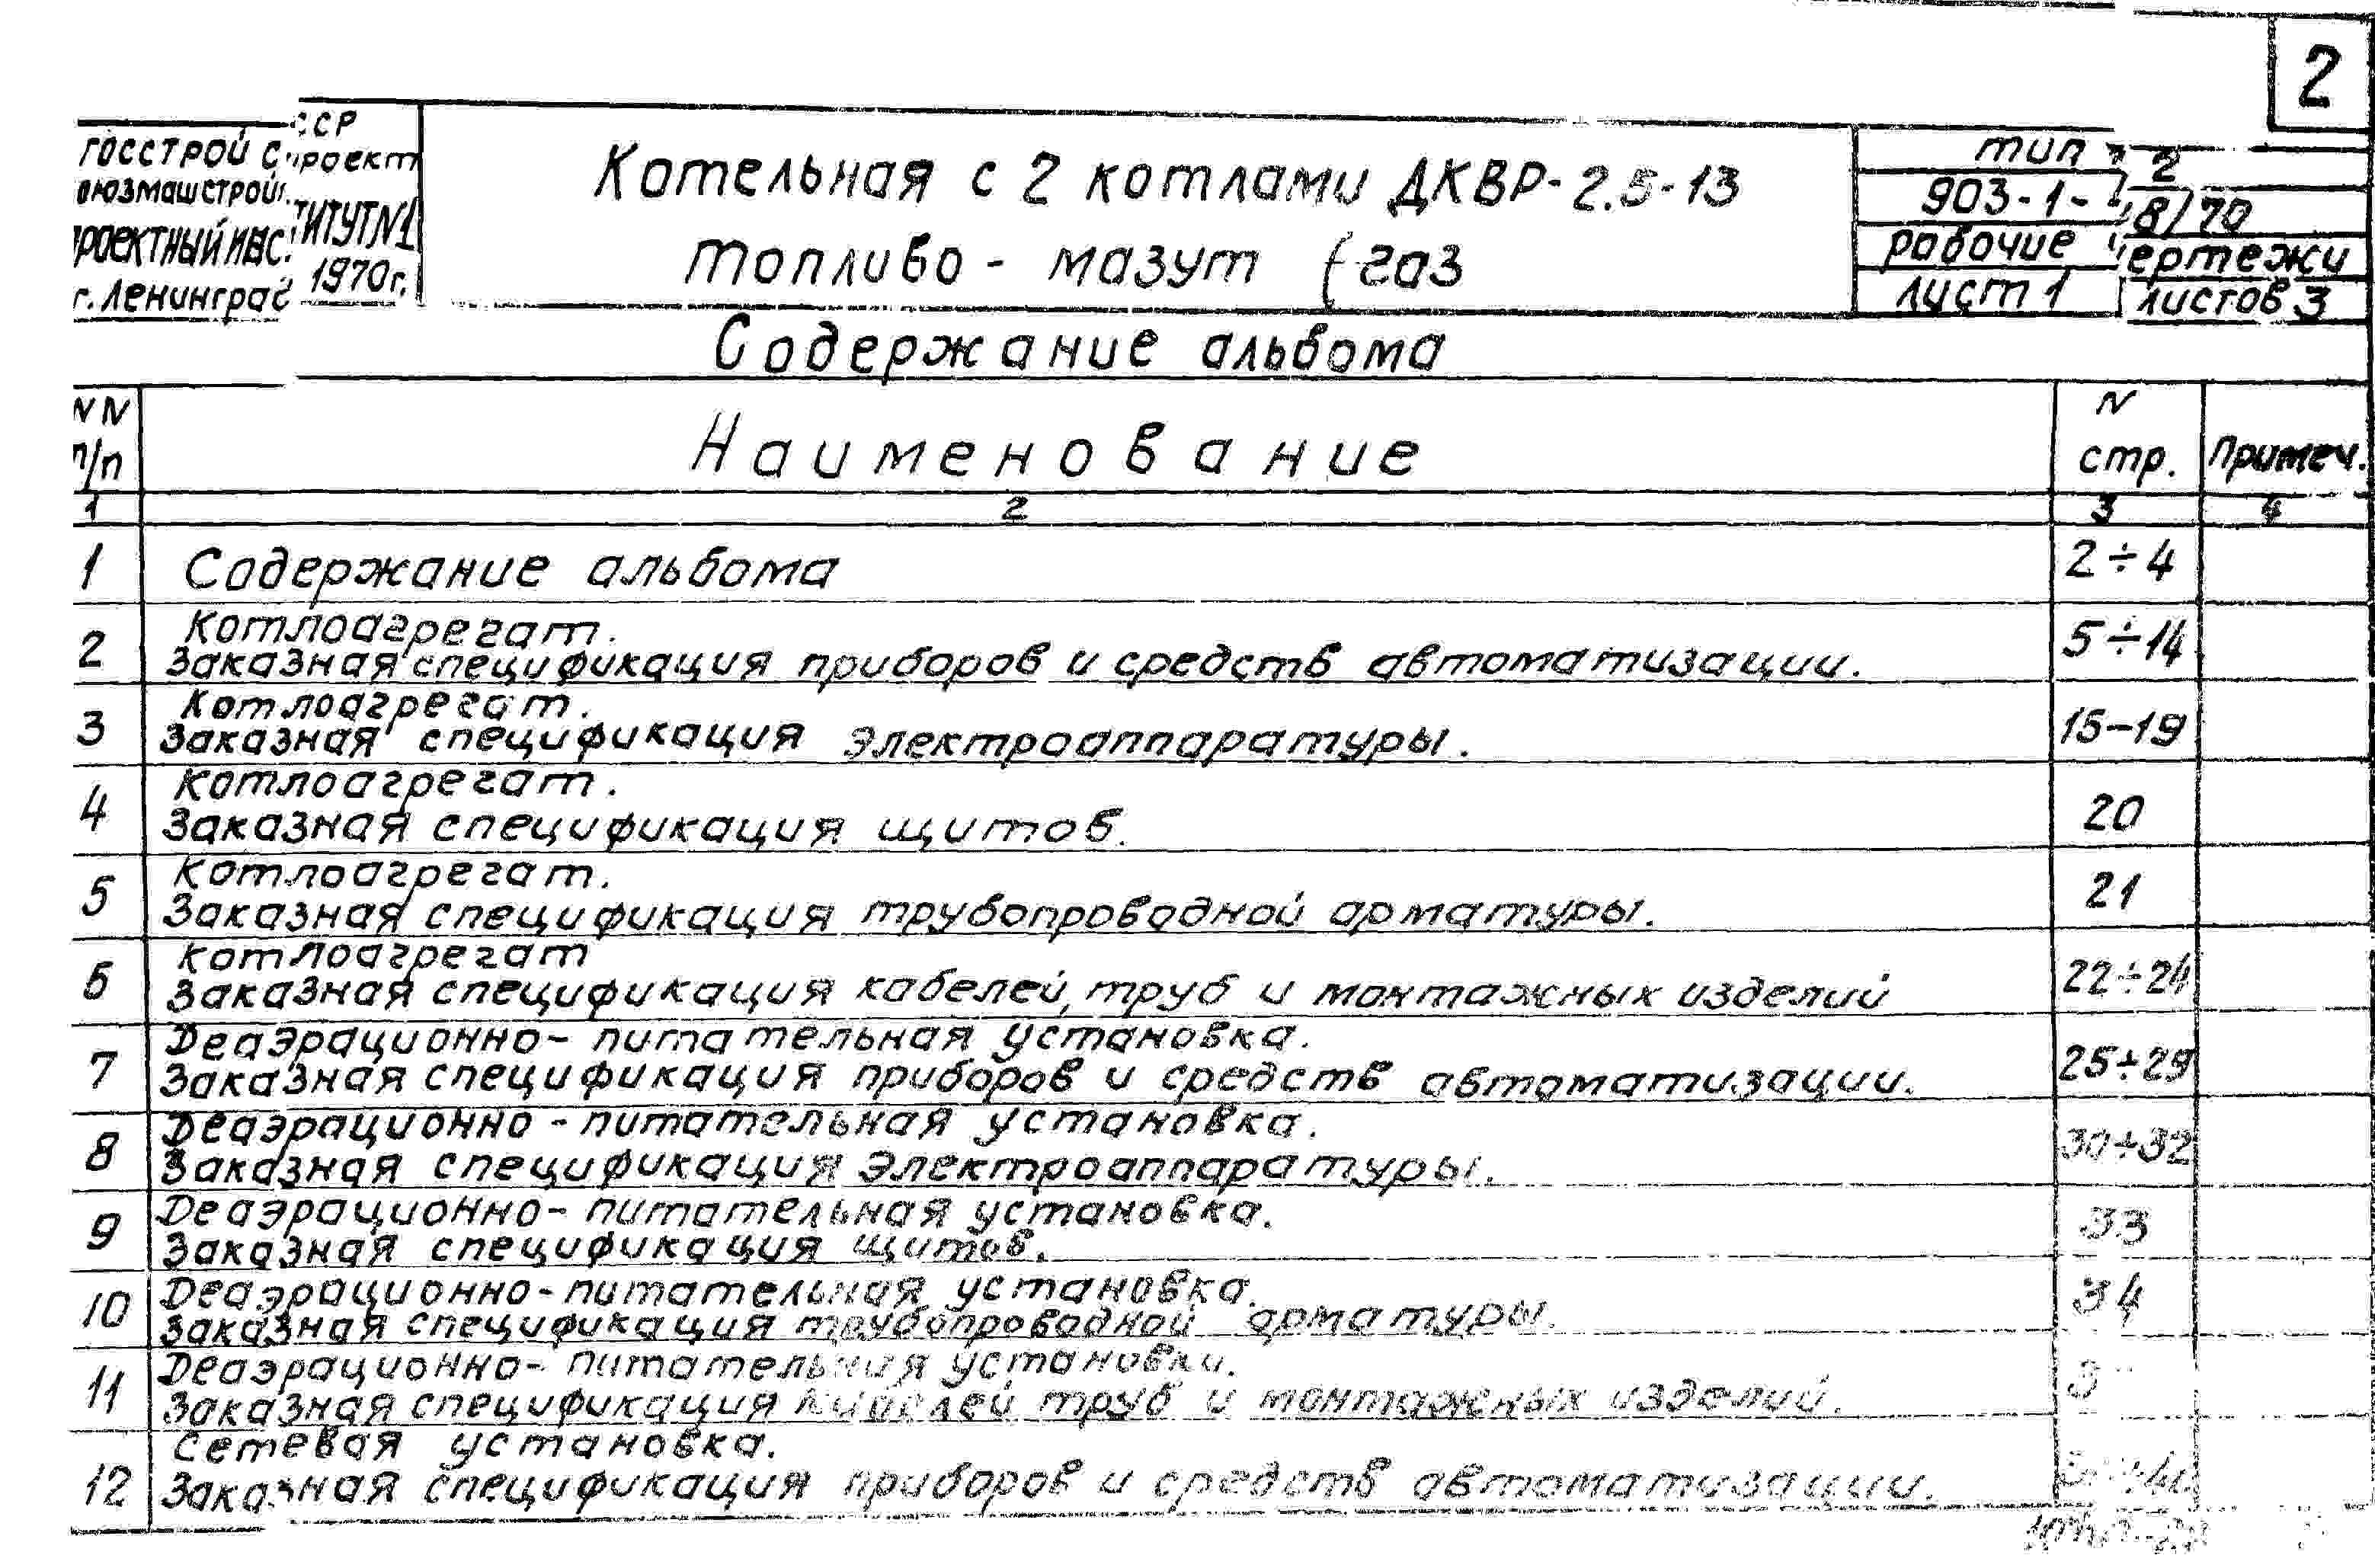 2
ГОССТРОЙ СССР
ОЮЗМАШСТРОЙПРОЕКТ
РОЕКТНЫЙ ИНСТИТУТ N1
г. Ленинград 1970г.
Котельная с 2 котлами ДКВР-2.5-13
топливо - мазут (газ
тип 2
903-1-8/70
рабочие чертежи
лист 1 листов 3
Содержание альбома
NN п/п
Наименование
N стр.
Примеч.
1 2 3 4
1 Содержание альбома 2÷4
Котлоагрегат.
2 Заказная спецификация приборов и средств автоматизации. 5÷14
Котлоагрегат.
3 Заказная спецификация электроаппаратуры. 15-19
Котлоагрегат.
4 Заказная спецификация щитов. 20
Котлоагрегат.
5 Заказная спецификация трубопроводной арматуры. 21
Котлоагрегат
6 Заказная спецификация кабелей, труб и монтажных изделий 22÷24
Деаэрационно-питательная установка.
7 Заказная спецификация приборов и средств автоматизации. 25÷29
Деаэрационно-питательная установка.
8 Заказная спецификация электроаппаратуры. 30÷32
Деаэрационно-питательная установка.
9 Заказная спецификация щитов. 33
Деаэрационно-питательная установка.
10 Заказная спецификация трубопроводной арматуры. 34
Деаэрационно-питательная установка.
11 Заказная спецификация кабелей труб и монтажных изделий.
Сетевая установка.
12 Заказная спецификация приборов и средств автоматизации.